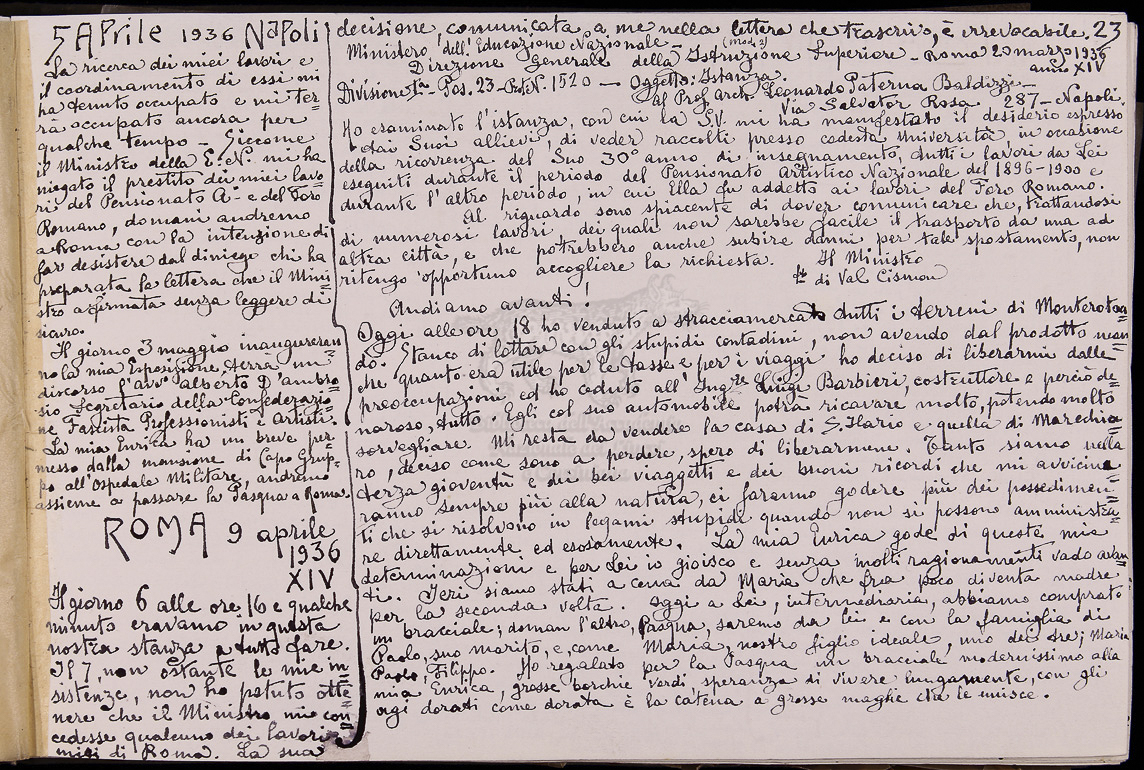 5 Aprile 1936 Napoli
La ricerca dei miei lavori e
il coordinamento di essi mi
ha tenuto occupato e mi ter=
rà occupato ancora per
qualche tempo – Siccome
il Ministro della E.N. mi ha
niegato il prestito dei miei lavo=
ri del Pensionato A. e del Foro
Romano, domani andremo
a Roma con la intenzione di
far desistere dal diniego chi ha
preparata la lettera che il Mini=
stro à firmata senza leggere di
sicuro.
Il giorno 3 maggio inaugureran=
no la mia Esposizione, terrà un
discorso l'avv. Alberto D'Ambro=
sio Segretario della Confederazio=
ne Fascista Professionisti e Artisti.
La mia Enrica ha un breve per=
messo dalla mansione di Capo Grup=
po all'Ospedale Militare, andremo
assieme a passare la Pasqua a Roma.
ROMA 9 aprile
1936
XIV
Il giorno 6 alle ore 16 e qualche
minuto eravamo in questa
nostra stanza a tutto fare.
Il 7, non ostante le mie in=
sistenze, non ho potuto otte=
nere che il Ministro mi con=
cedesse qualcuno dei lavori
miei di Roma. La sua
decisione, comunicata a me nella lettera che trascrivo, è irrevocabile. 23
Ministero dell'Educazione Nazionale –
Direzione Generale della Istruzione Superiore – Roma 20 marzo 1936
anno XIV
Divisione – Pos. 23 – Prot. N. 1520 — Oggetto: Istanza.
Al Prof. Arch. Leonardo Paterna Baldizzi –
Via Salvator Rosa 287 – Napoli.
Ho esaminato l'istanza, con cui la S.V. mi ha manifestato il desiderio espresso
dai Suoi allievi, di veder raccolti presso codesta Università in occasione
della ricorrenza del Suo 30° anno di insegnamento, tutti i lavori da Lei
eseguiti durante il periodo del Pensionato Artistico Nazionale del 1896-1900 e
durante l'altro periodo, in cui Ella fu addetto ai lavori del Foro Romano.
Al riguardo sono spiacente di dover comunicare che, trattandosi
di numerosi lavori dei quali non sarebbe facile il trasporto da una ad
altra città, e che potrebbero anche subire danni per tale spostamento, non
ritengo opportuno accogliere la richiesta. Il Ministro
di Val Cismon
Andiamo avanti!
Oggi alle ore 18 ho venduto a stracciamercato tutti i terreni di Monteroton=
do. Stanco di lottare con gli stupidi contadini, non avendo dal prodotto nean=
che quanto era utile per le tasse e per i viaggi ho deciso di liberarmi dalle
preoccupazioni ed ho ceduto all'Ing. Luigi Barbieri, costruttore e perciò de=
naroso, tutto. Egli col suo automobile potrà ricavare molto, potendo molto
sorvegliare. Mi resta da vendere la casa di S. Ilario e quella di Marechia=
ro, deciso come sono a perdere, spero di liberarmene. Tanto siamo nella
terza gioventù e dei bei viaggetti e dei buoni ricordi che mi avvicine=
ranno sempre più alla natura, ci faranno godere più dei possedimen=
ti che si risolvono in legami stupidi quando non si possono amministra=
re direttamente ed esosamente. La mia Enrica gode di queste mie
determinazioni e per Lei io gioisco e senza molti ragionamenti vado avan=
ti. Ieri siamo stati a cena da Maria che fra poco diventa madre
per la seconda volta. Oggi a Lei, intermediaria, abbiamo comprato
un bracciale; doman l'altro, Pasqua, saremo da lei e con la famiglia di
Paolo, suo marito, e, come Maria, nostro figlio ideale, uno dei tre; Maria
Paolo, Filippo. Ho regalato per la Pasqua un bracciale modernissimo alla
mia Enrica, grosse borchie verdi speranza di vivere lungamente, con gli
agi dorati come dorata è la catena a grosse maglie che le unisce.